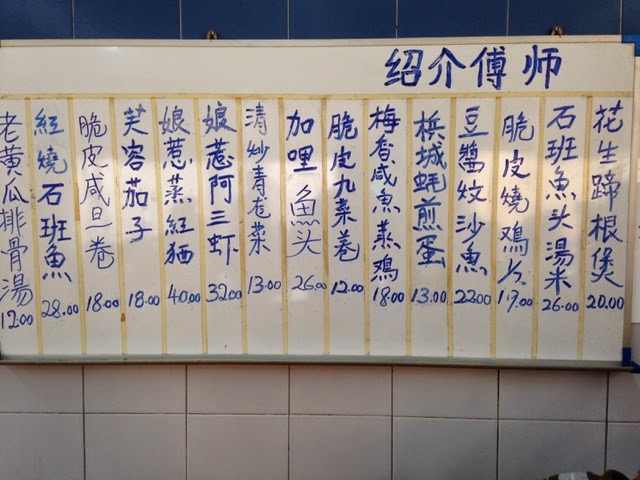 师傅介绍
花生蹄根煲
20.00
石班魚头湯米
26.00
脆皮燒鸡½
19.00
豆醬炆沙魚
22.00
梹城蚝煎蛋
13.00
梅香咸魚蒸鸡
18.00
脆皮九菜卷
12.00
加哩魚头
26.00
清炒青菜
13.00
娘惹阿三虾
32.00
娘惹蒸紅
40.00
芙容茄子
18.00
脆皮咸旦卷
18.00
紅燒石班魚
28.00
老黄瓜排骨湯
12.00